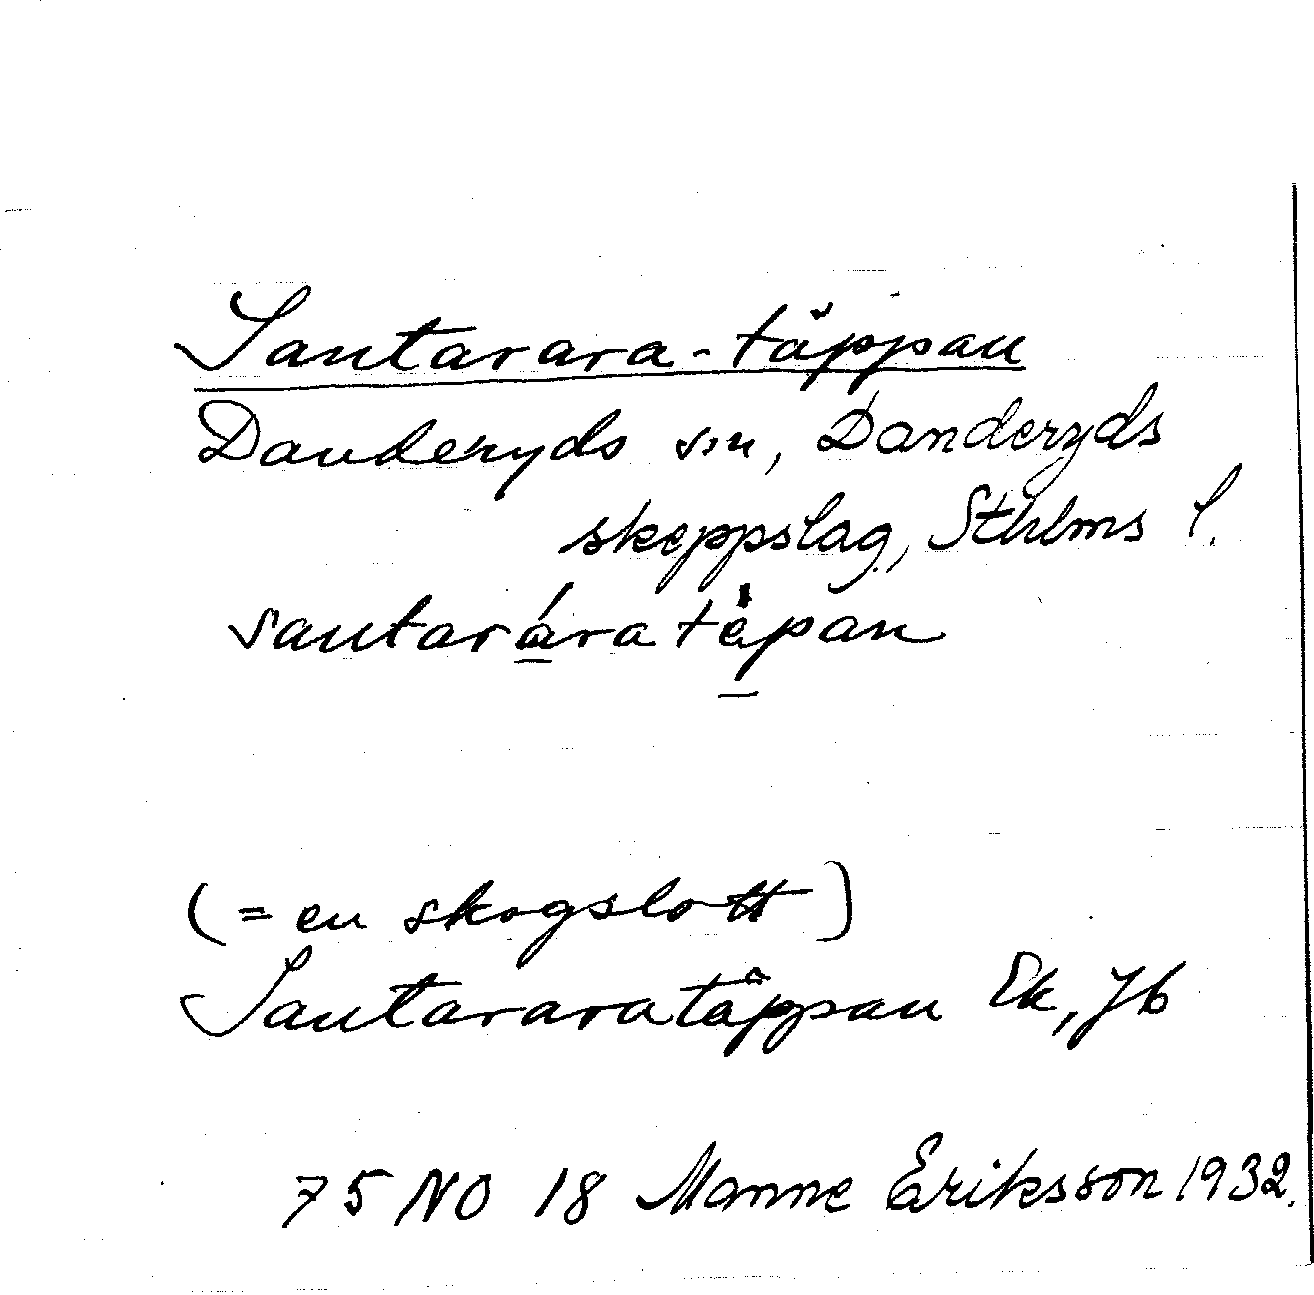 Santarara-täppan
Danderyds sn, Danderyds
skeppslag, Sthlms l.
santarára täpan
(= en skogslott)
Santararatäppan Ek, Jb
75 NO 18 Manne Eriksson 1932.